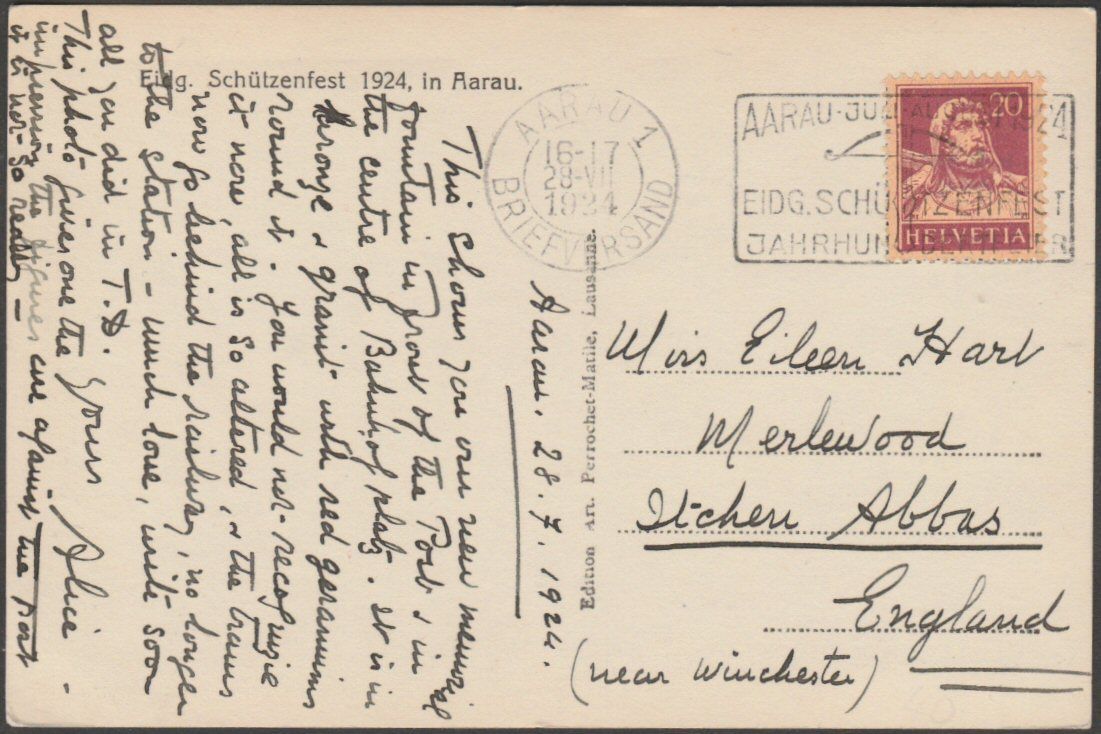 Eidg. Schützenfest 1924, in Aarau.
AARAU 1
16-17
28-VII
1924
BRIEFVERSAND
AARAU · JULI 1924
EIDG. SCHÜTZENFEST
JAHRHUNDERTFEIER
20
HELVETIA
This shows you our new memorial
fountain in front of the Post & in
the centre of Bahnhofplatz. It is in
bronze & granit with red geraniums
round it. You would not recognize
it now, all is so altered, & the trams
now go behind the railway, no longer
to the station - much love, write soon
all you did in T.D.
This photo gives one the
impression the figures are against the Post
it is not so really -
Yours Alice -
Aarau. 28.7.1924.
Edition Art. Perrochet-Matile, Lausanne.
Miss Eileen Hart
Merlewood
Itchen Abbas
England
(near Winchester)